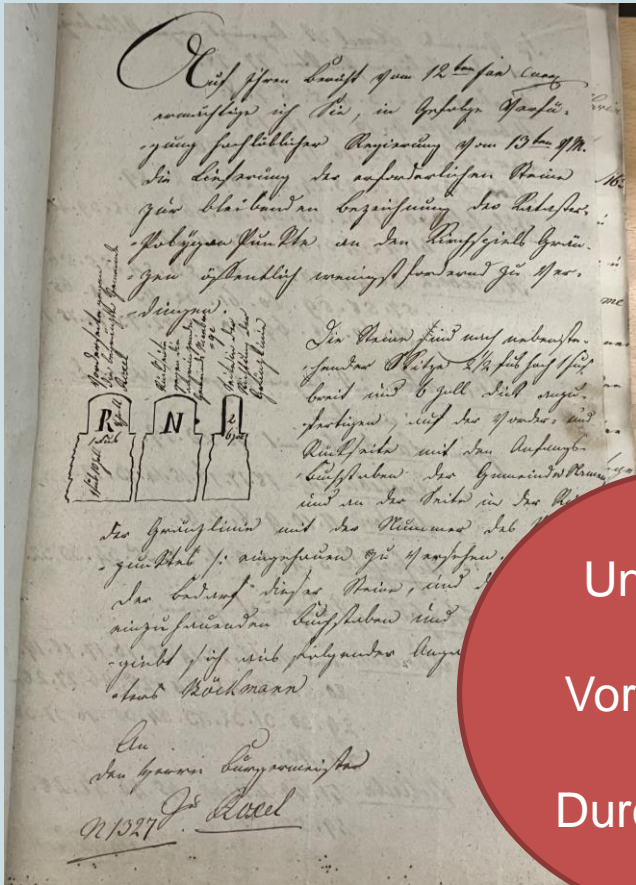 Auf Ihren Bericht vom 12ten Jan curr
ermächtige ich Sie, in Gefolge Verfü-
-gung hochlöblicher Regierung vom 13ten v M.
die Lieferung der erforderlichen Steine
zur bleibenden Bezeichnung der Kataster-
-Polygon Punkte an den Kirchspiels Grän-
zen öffentlich wenigstfordernd zu ver-
-dingen.
Vorderseite gegen
die Gemeinde
Roxel
Rückseite
gegen die
Seitenansicht
Richtung der
Gränzlinie
R
N
2
1 Fuß
6 Zoll
Die Steine sind nach nebenste-
-hender Skitze 2½ Fus hoch 1 Fus
breit und 6 Zoll dick anzu-
-fertigen, auf der Vorder- und
Rückseite mit den Anfangs-
Buchstaben der Gemeinde Namen
und an der Seite in der
der Gränzlinie mit der Nummer des
-punktes /: eingehauen zu versehen.
Der Bedarf dieser Steine, und
einzuhauenden Buchstaben und
-giebt sich aus folgender
-ters Böckmann
An
den Herrn Bürgermeister
zu Roxel
N 1327
Un
Vor
Durc